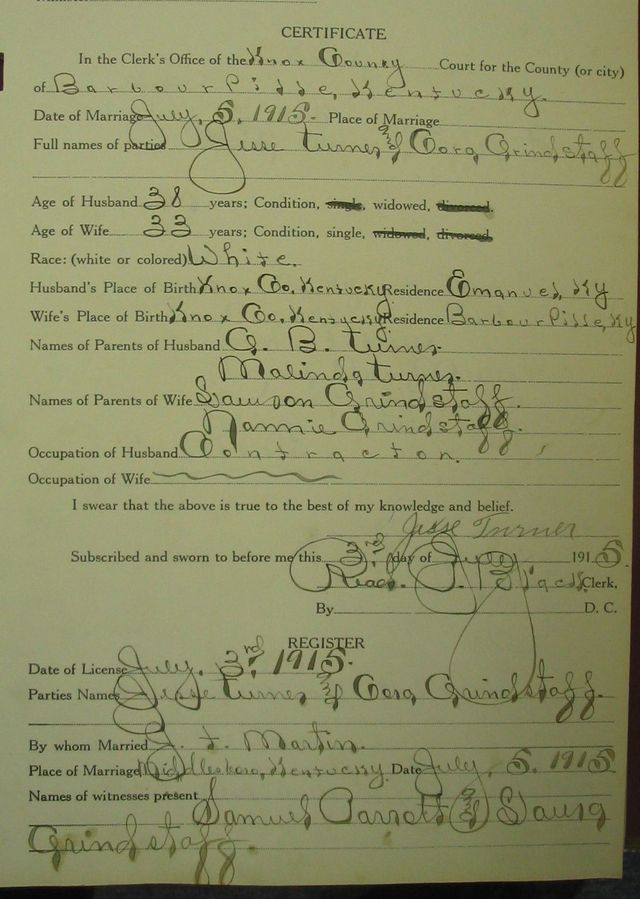 CERTIFICATE
In the Clerk's Office of the Knox County Court for the County (or city)
of Barbourville, Kentucky.
Date of Marriage July, 5, 1915. Place of Marriage
Full names of parties Jesse Turner & Cora Grindstaff
Age of Husband 38 years; Condition, single, widowed, divorced.
Age of Wife 33 years; Condition, single, widowed, divorced.
Race: (white or colored) White.
Husband's Place of Birth Knox Co, Kentucky Residence Emanuel, Ky
Wife's Place of Birth Knox Co, Kentucky Residence Barbourville, Ky
Names of Parents of Husband G. B. Turner.
Malinda Turner.
Names of Parents of Wife Lawson Grindstaff.
Nannie Grindstaff.
Occupation of Husband Contractor.
Occupation of Wife
I swear that the above is true to the best of my knowledge and belief.
Jesse Turner
Subscribed and sworn to before me this 3rd, day of July 1915.
Read. Black Clerk,
By D. C.
REGISTER
Date of License July. 3rd, 1915.
Parties Names Jesse Turner & Cora Grindstaff.
By whom Married Martin.
Place of Marriage Middlesboro, Kentucky. Date July, 5. 1915
Names of witnesses present Samuel Parrott &
Grindstaff.